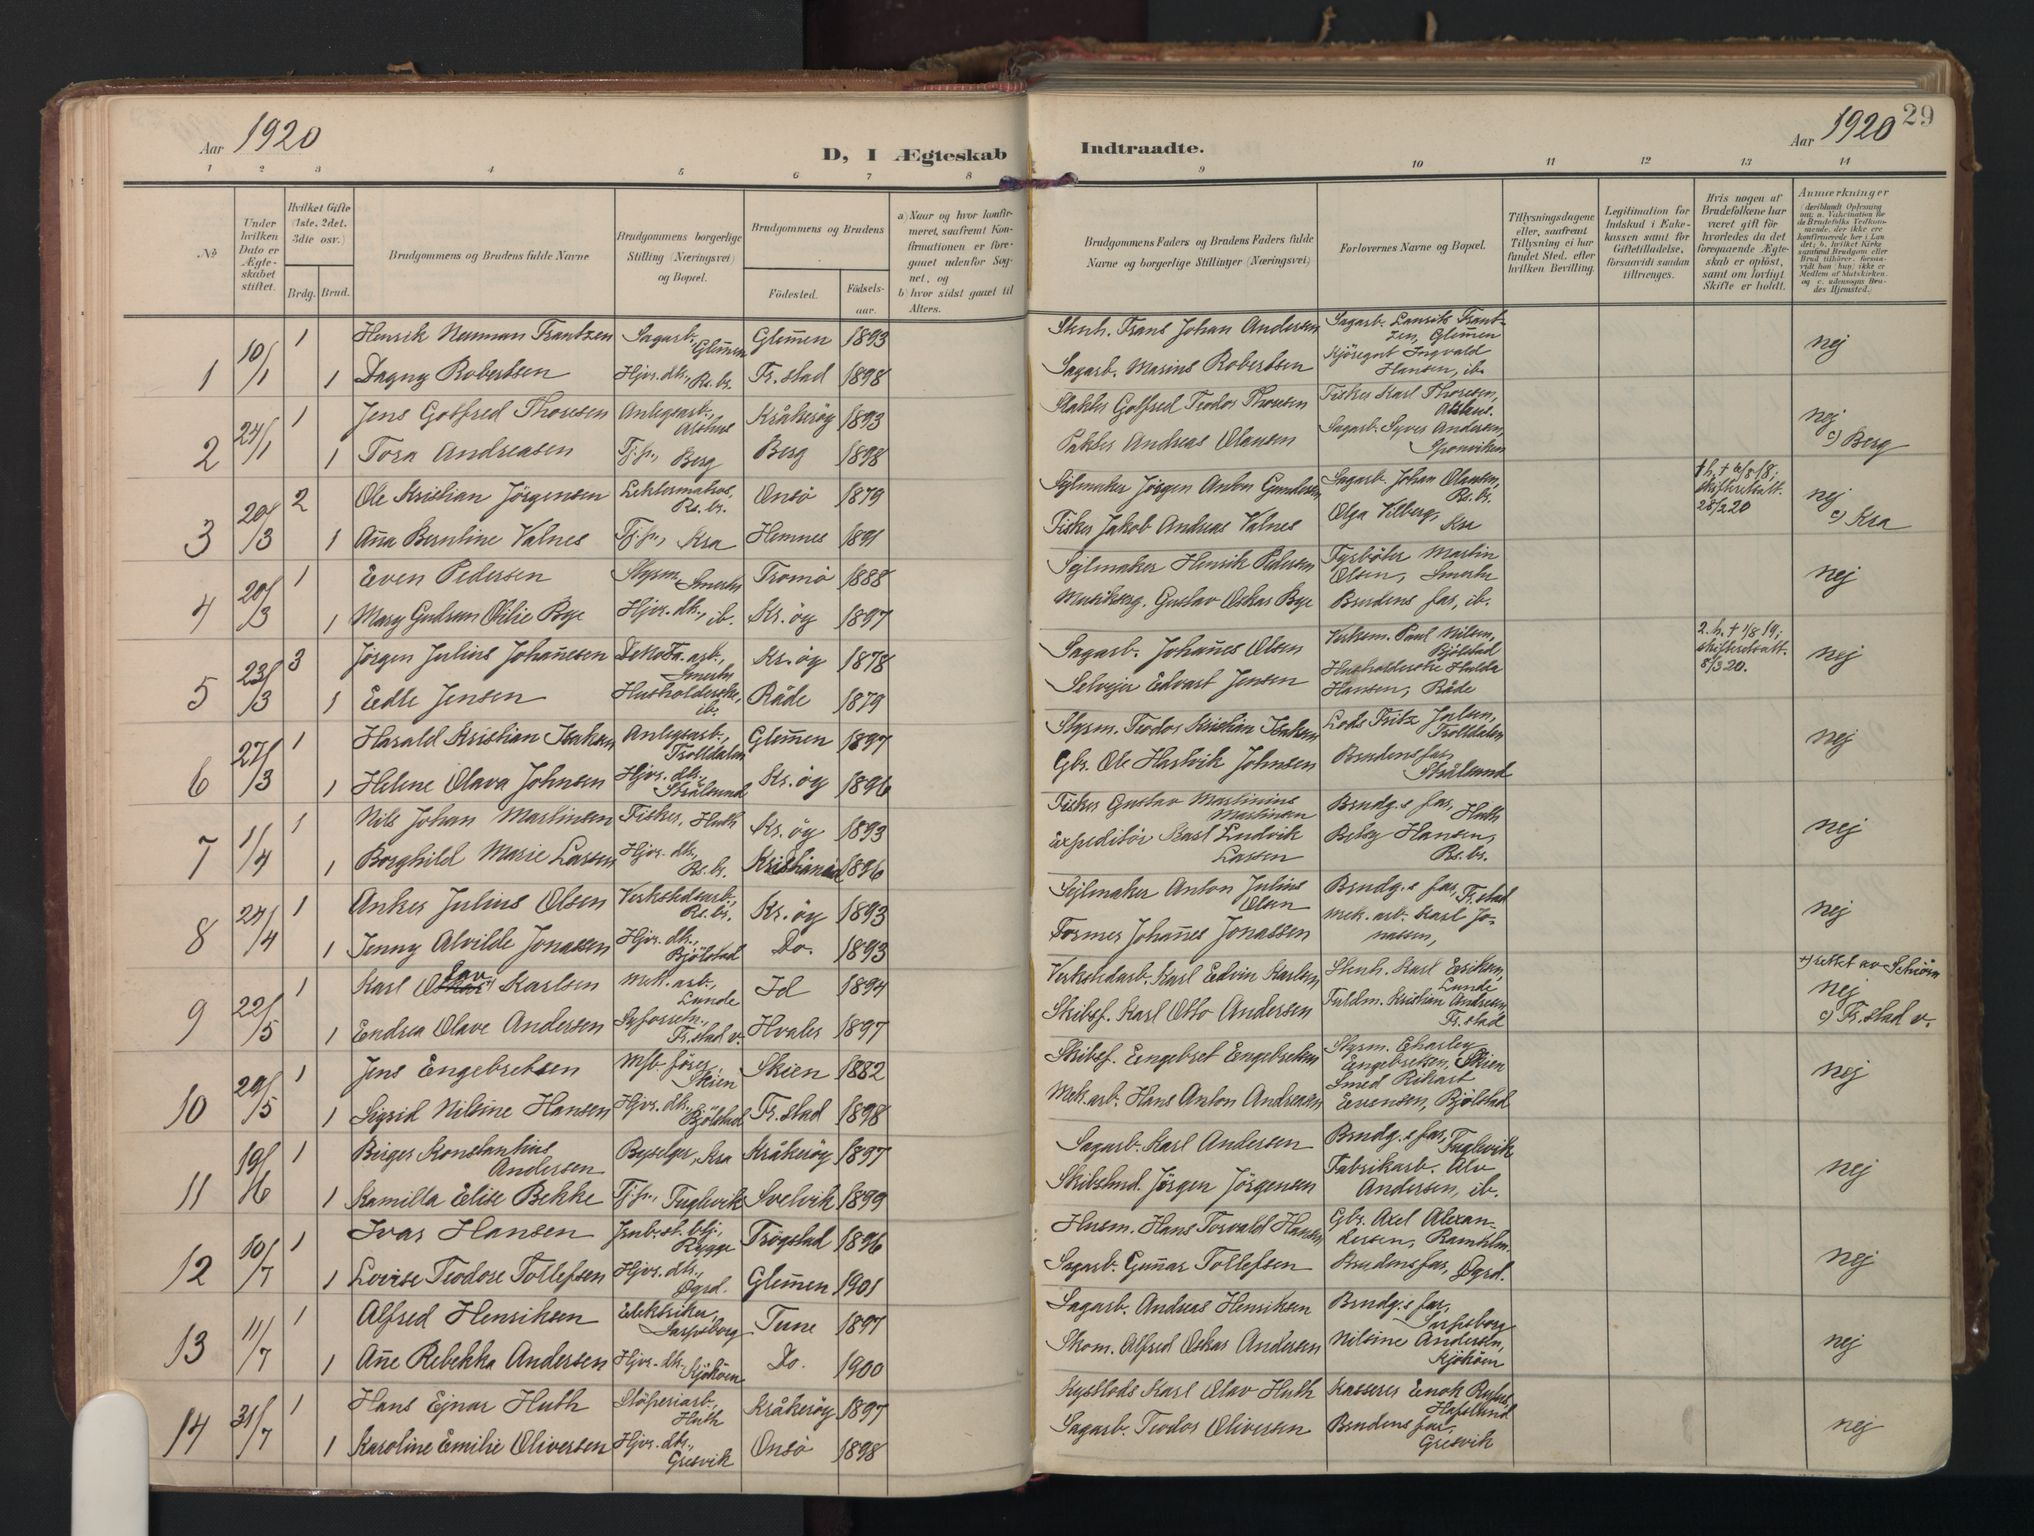 Aar 1920
D, I Ægteskab
Indtraadte.
Aar 1920
29
1 2 3 4 5 6 7 8 9 10 11 12 13 14
№
Under hvilken Dato er Ægteskabet stiftet.
Hvilket Gifte (1ste, 2det, 3die osv.)
Brdg. Brud.
Brudgommens og Brudens fulde Navne
Brudgommens borgerlige Stilling (Næringsvei) og Bopæl.
Brudgommens og Brudens
Fødested.
Fødsels-aar.
a) Naar og hvor konfirmeret, saafremt Konfirmationen er foregaaet udenfor Sognet, og
b) hvor sidst gaaet til Alters.
Brudgommens Faders og Brudens Faders fulde Navne og borgerlige Stillinger (Næringsvei)
Forlovernes Navne og Bopæl.
Tillysningsdagene eller, saafremt Tillysning ei har fundet Sted, efter hvilken Bevilling.
Legitimation for Indskud i Enkekassen samt for Giftetilladelse, forsaavidt saadan tiltrænges.
Hvis nogen af Brudefolkene har været gift før hvorledes da det foregaaende Ægteskab er opløst, samt om lovligt Skifte er holdt.
Anmærkninger
1 10/1 1 Henrik Neuman Frantzen Sagarb. Glem̄en Glem̄en 1893 Stenh. Frans Johan Andersen Sagarb. Laurits Frantzen, Glem̄en nej
1 Dagny Robertsen Hjvr. dtr., Rs.br. Fr.stad 1898 Sagarb. Marius Robertsen Kjöregut Ingvald Hansen, ib.
2 24/1 1 Jens Gotfred Thoresen Anlegsarb., Alshus Kråkeröy 1893 Gotfred Teodor Thoresen Fisker Karl Thoresen, Alshus. nej
1 Tora Andreasen Tj.p., Berg Berg 1898 Andreas Olausen Sagarb. Syver Andersen, Sponviken c) Berg
3 20/3 2 Ole Kristian Jörgensen Rs.br. Onsö 1879 Sejlmaker Jörgen Anton Gundersen Sagarb. Johan Olausen, Rs.br. nej
1 An̄a Berntine Valnes Tj.p., Kra Hemnes 1891 Fisker Jakob Andreas Valnes Olga Vilberg, Kra c) Kra
4 20/3 1 Even Pedersen Styrm. Smertu Tromö 1888 Sejlmaker Henrik Pedersen Fyrböter Martin Olsen, Smertu nej
1 Mary Gudrun Otilie Bye Hjvr. dtr., ib. Kr.öy 1897 Gustav Oskar Bye Brudens far, ib.
5 23/3 3 Jörgen Julius Johan̄esen Smertu Kr.öy 1878 Sagarb. Johan̄es Olsen Verksm. Paul Nilsen, Bjölstad nej
1 Edle Jensen Husholderske, ib. Råde 1879 Selvejer Edvart Jensen Husholderske Hulda Hansen, Råde
6 27/3 1 Harald Kristian Isaksen Anlegsarb., Trolldalen Glem̄en 1897 Styrm. Teodor Kristian Isaksen Lods Fritz Jolsen, Trolldalen nej
1 Helene Olava Johnsen Hjvr. dtr., Strålsund Kr.öy 1896 Gbr. Ole Hartvik Johnsen Brudens far, Strålsund
7 1/4 1 Nils Johan Martinsen Fisker, Huth Kr.öy 1893 Fisker Gustav Martinius Martinsen Brudg.s far, Huth nej
1 Borghild Marie Larsen Hjvr. dtr., Rs.br. 1896 Expeditör Karl Ludvik Larsen Betsy Hansen, Rs.br.
8 24/4 1 Anker Julius Olsen Verkstedsarb., Rs.br. Kr.öy 1893 Sejlmaker Anton Julius Olsen Brudg.s far, Fr.stad nej
1 Jenny Alvilde Jonassen Hjvr. dtr., Bjölstad Do. 1893 Former Johan̄es Jonassen Mek. arb. Karl Jonassen,
9 22/5 1 Karl Olav Karlsen Mek. arb., Lunde Id 1894 Verkstedarb. Karl Edvin Karlsen Stenh. Karl Eriksen, Lunde nej
1 Endrea Olave Andersen Fr.stad v. Hvaler 1897 Skibsf. Karl Otto Andersen Fuldm. Kristian Andersen Fr.stad c) Fr.stad v.
10 29/5 1 Jens Engebretsen Skien Skien 1882 Skibsf. Engebret Engebretsen Styrm. Charley Engebretsen, Skien nej
1 Sigrid Nilsine Hansen Hjvr. dtr., Bjölstad Fr.stad 1898 Mek. arb. Hans Anton Andreasen Smed Rikart Evensen, Bjölstad
11 19/6 1 Birger Konstantius Andersen Kra Kråkeröy 1897 Sagarb. Karl Andersen Brudg.s far, Fuglevik nej
1 Kamilla Elise Bekke Tj.p., Fuglevik Svelvik 1899 Jörgen Jörgensen Fabrikarb. Alv Andersen, ib.
12 10/7 1 Ivar Hansen Rygge Trögstad 1896 Husm. Hans Torvald Hansen Gbr. Axel Alexandersen, nej
1 Lovise Teodore Tollefsen Hjvr. dtr., Öyrd. Glem̄en 1901 Sagarb. Gun̄ar Tollefsen Brudens far, Öyrd.
13 11/7 1 Alfred Henriksen Elektriker, Sarpsborg Tune 1897 Sagarb. Andreas Henriksen Brudg.s far, Sarpsborg nej
1 An̄e Rebekka Andersen Hjvr. dtr., Kjököen Do. 1900 Skom. Alfred Oskar Andersen Nilsine Andersen, Kjököen
14 31/7 1 Hans Ejnar Huth Stöperiarb., Huth Kråkeröy 1897 Kystlods Karl Olav Huth Kasserer Enok Hafslund nej
1 Karoline Emilie Oliversen Hjvr. dtr., Gresvik Onsö 1898 Sagarb. Teodor Oliversen Brudens far, Gresvik